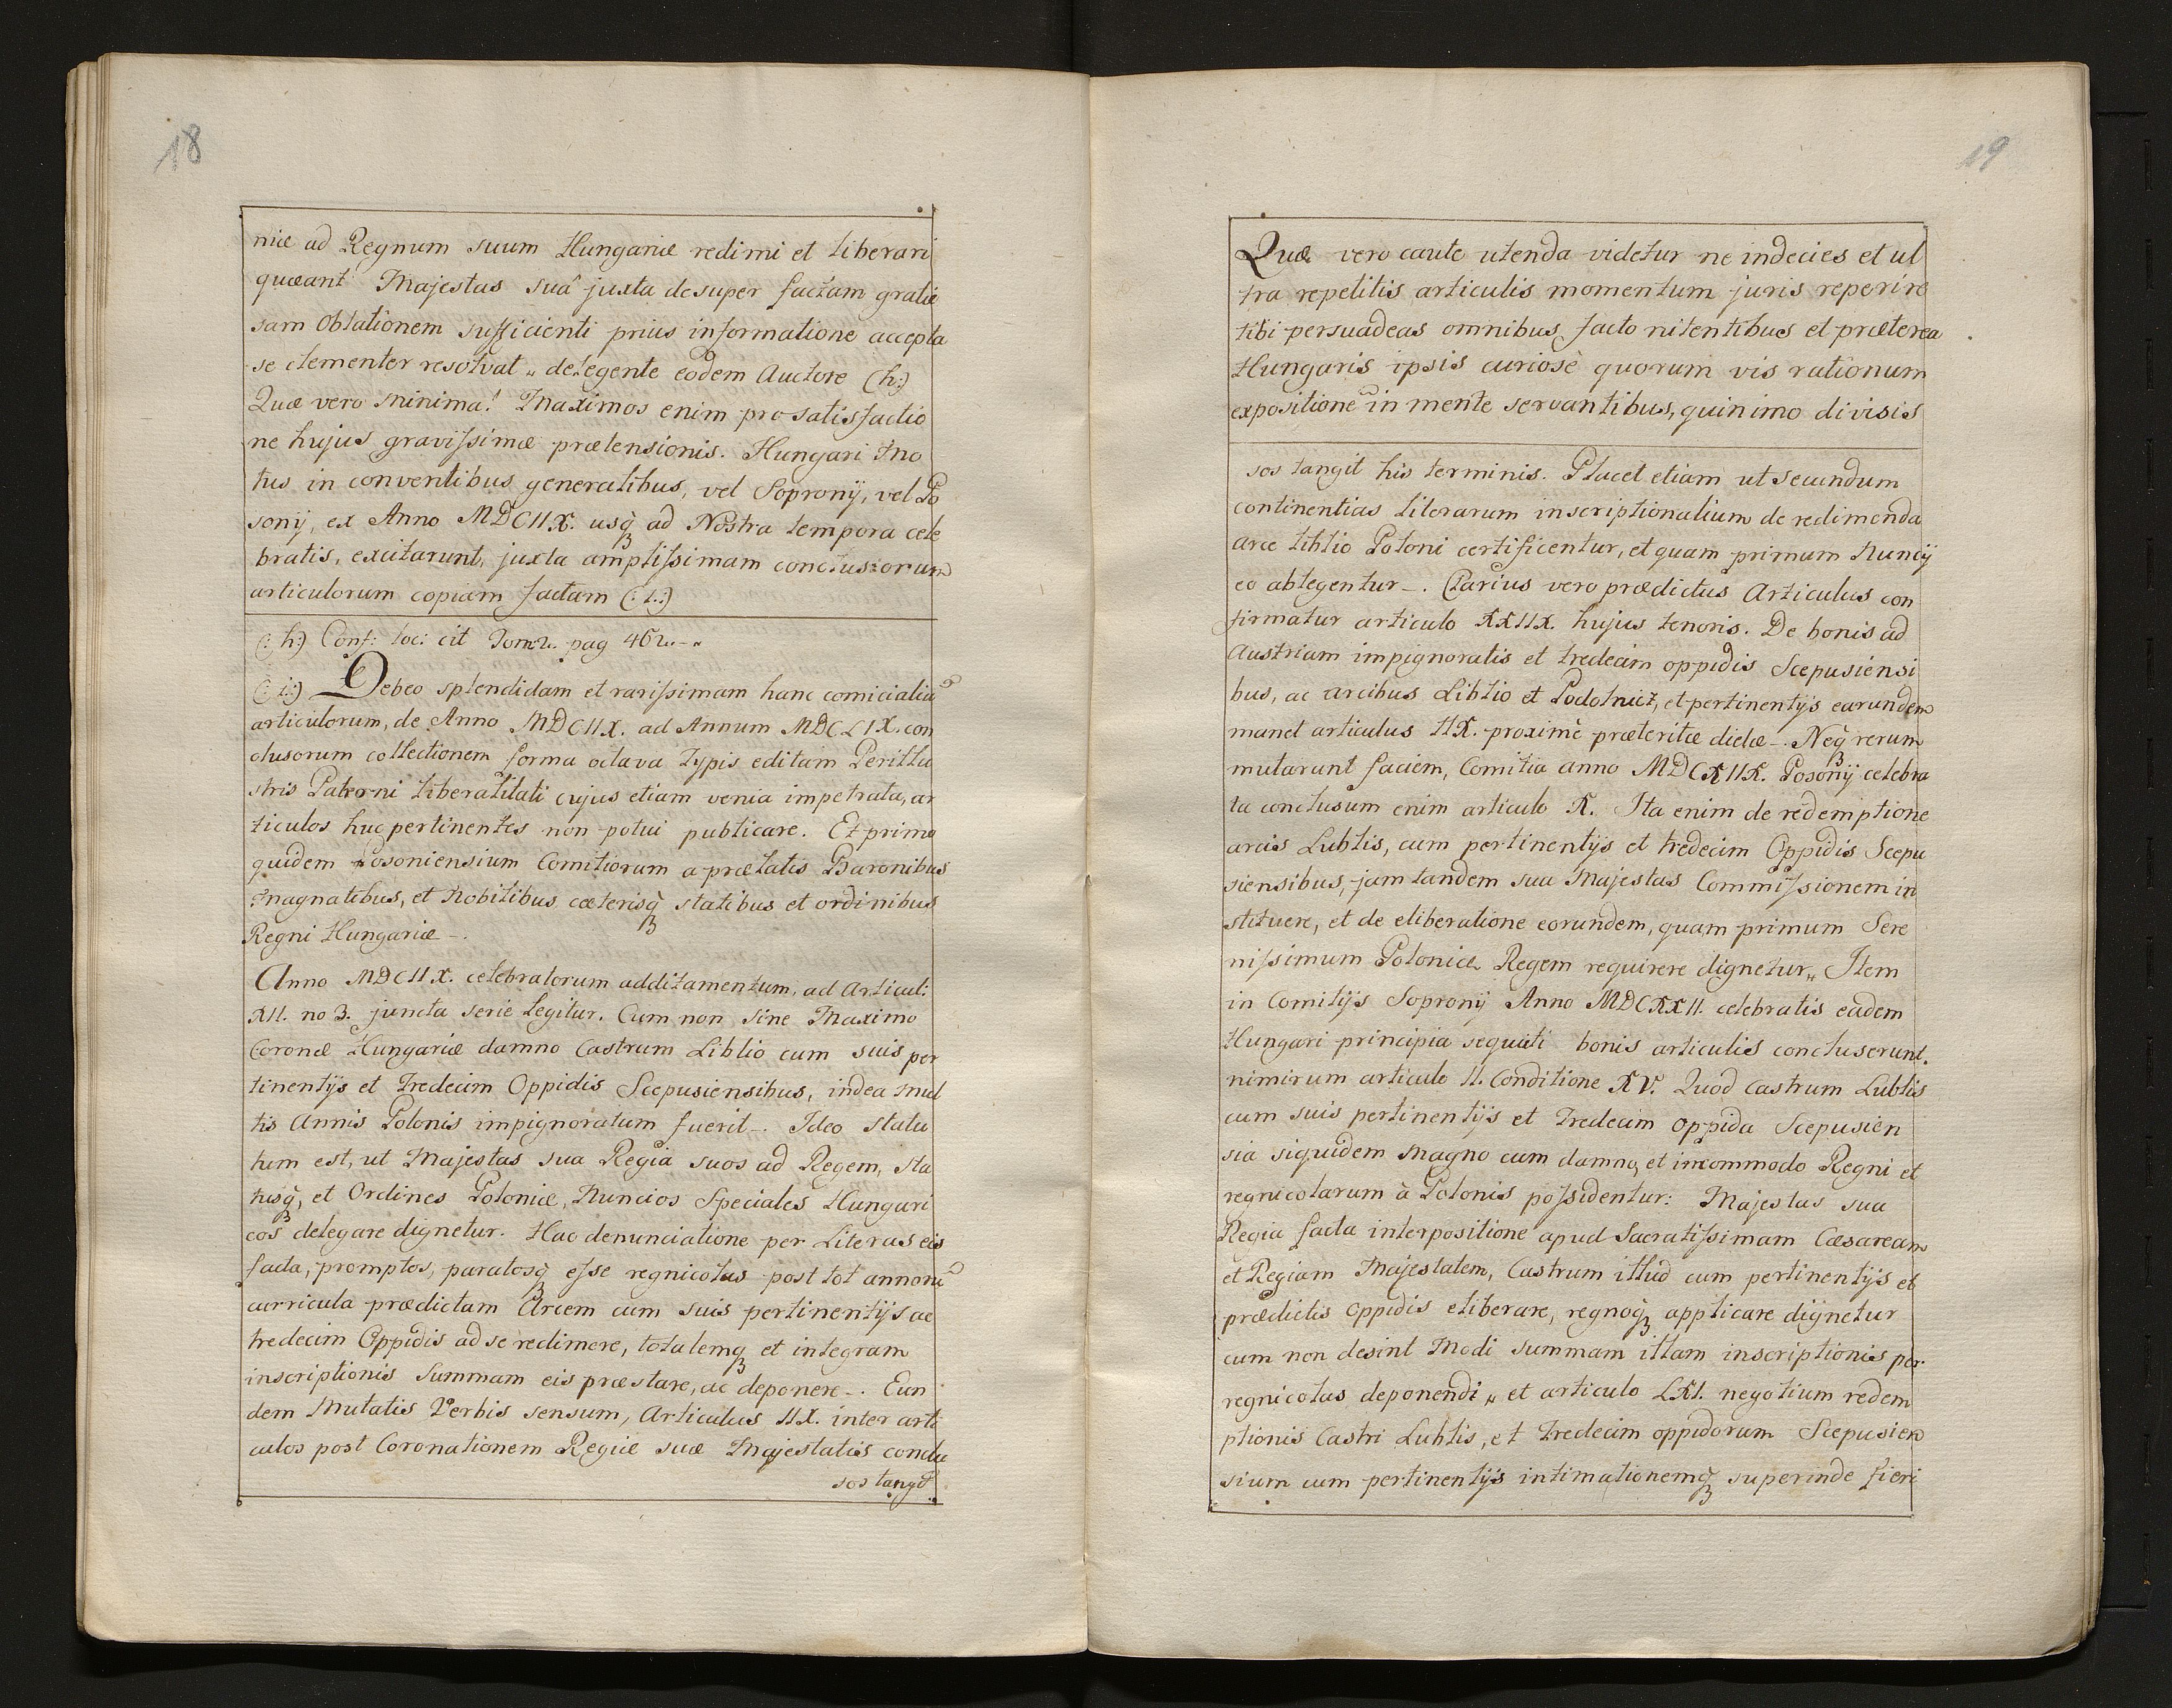 18
niæ ad Regnum suum Hungariæ redimi et liberari
queant Majestas sua juxta desuper factam gratio
sam Oblationem sufficienti prius informatione accepta
se clementer resolvat„ delegente eodem Auctore (h:)
Quæ vero minima! Maximos enim pro satisfactio
ne hujus gravissimæ prætensionis. Hungari Mo
tus in conventibus generalibus, vel Soprony, vel Po
sonÿ, ex Anno MDCIIX. usq̀ꝫ ad Nostra tempora cele
bratis, excitarunt, juxta amplissimam conclusiorum
articulorum copiam factam (:i.:)
(: h:) Conf: loc: cit Tom: 2. pag 462.–„
(: i:) Debeo splendidam et rarissimam hanc comicialiū
articulorum, de Anno MDCIIX. ad Annum MDCLIX. con
clusorum collectionem forma octava Typis editam Perillu
stris Paterni liberalitati cujus etiam venia impetrata, ar
ticulos huc pertinentes non potui publicare. Et primo
quidem Posoniensium Comitiorum a prælatis Baronibus
Magnatibus, et Nobilibus cæterisq̀ꝫ statibus et ordinibus
Regni Hungariæ –.
Anno MDCIIX. celebratorum additamentum, ad Articul:
XII. no 3. juncta serie legitur. Cum non sine Maximo
Coronæ Hungariæ damno Castrum Liblio cum suis per
tinentÿs et Tredecim Oppidis Scepusiensibus, indea mul
tis Annis Polonis impignoratum fuerit –. Ideo statu
tum est, ut Majestas sua Regia suos ad Regem, sta
tusq̀ꝫ, et Ordines Poloniæ, Nuncios Speciales Hungari
cos delegare dignetur. Hac denunciatione per Literas eis
facta, promptos, paratosq̀ꝫ esse regnicolas post tot annorū
curricula prædictam Arcem cum suis pertinentÿs ac
tredecim Oppidis ad se redimere, totalemq̀ꝫ et integram
inscriptionis Summam eis præstare, ac deponere –. Eun
dem Mutatis Verbis sensum, Articulus IIX. inter arti
culos post Coronationem Regiæ suæ Majestatis conclu
sos tangit
19
Quæ vero caute utenda videtur ne indecies et ul
tra repetitis articulis momentum juris reperire
tibi persuadeas omnibus facto nitentibus et præterea
Hungaris ipsis curiosè quorum vis rationum
expositione in mente servantibus, quinimo divisis
sos tangit his terminis. Placet etiam ut secundum
continentias literarum inscriptionalium de redimenda
arce liblio Poloni certificentur, et quam primum Nuncÿ
eo ablegentur –. Clarius vero prædictus Articulus con
firmatur articulo XXIIX. hujus tenoris. De bonis ad
Austriam impignoratis et tredecim oppidis Scepusiensi
bus, ac arcibus Liblio et Podolnicz, et pertinentÿs earundem
manet articulus IIX. proximè præteritæ dietæ –. Neq̀ꝫ rerum
mutarunt faciem, Comitia anno MDCXIIX. Posonÿ celebra
ta conclusum enim articulo X. Ita enim de redemptione
arcis Lublis, cum pertinentÿs et tredecim Oppidis Scepu
siensibus, jam tandem sua Majestas Commissionem in
stituere, et de eliberatione eorundem, quam primum Sere
nissimum Poloniæ Regem requirere dignetur„ Item
in Comitÿs Sopronÿ Anno MDCXXII. celebratis eadem
Hungari principia sequuti bonis articulis concluserunt.
nimirum articulo II. Conditione XV. Quod Castrum Lublis
cum suis pertinentÿs et Tredecim oppida Scepusien
sia siquidem magno cum damno, et incommodo Regni et
regnicolarum à Polonis possidentur: Majestas sua
Regia facta interpositione apud Sacratissimam Cæsaream
et Regiam Majestatem, Castrum illud cum pertinentÿs et
prædictis oppidis eliberare, regnoq̀ꝫ applicare dignetur
cum non desint Modi summam illam inscriptionis per
regnicolas deponendi„ et articulo LXI. negotium redem
ptionis Castri Lublis, et Tredecim oppidorum Scepusien
sium cum pertinentÿs intimationemq̀ꝫ superinde fieri